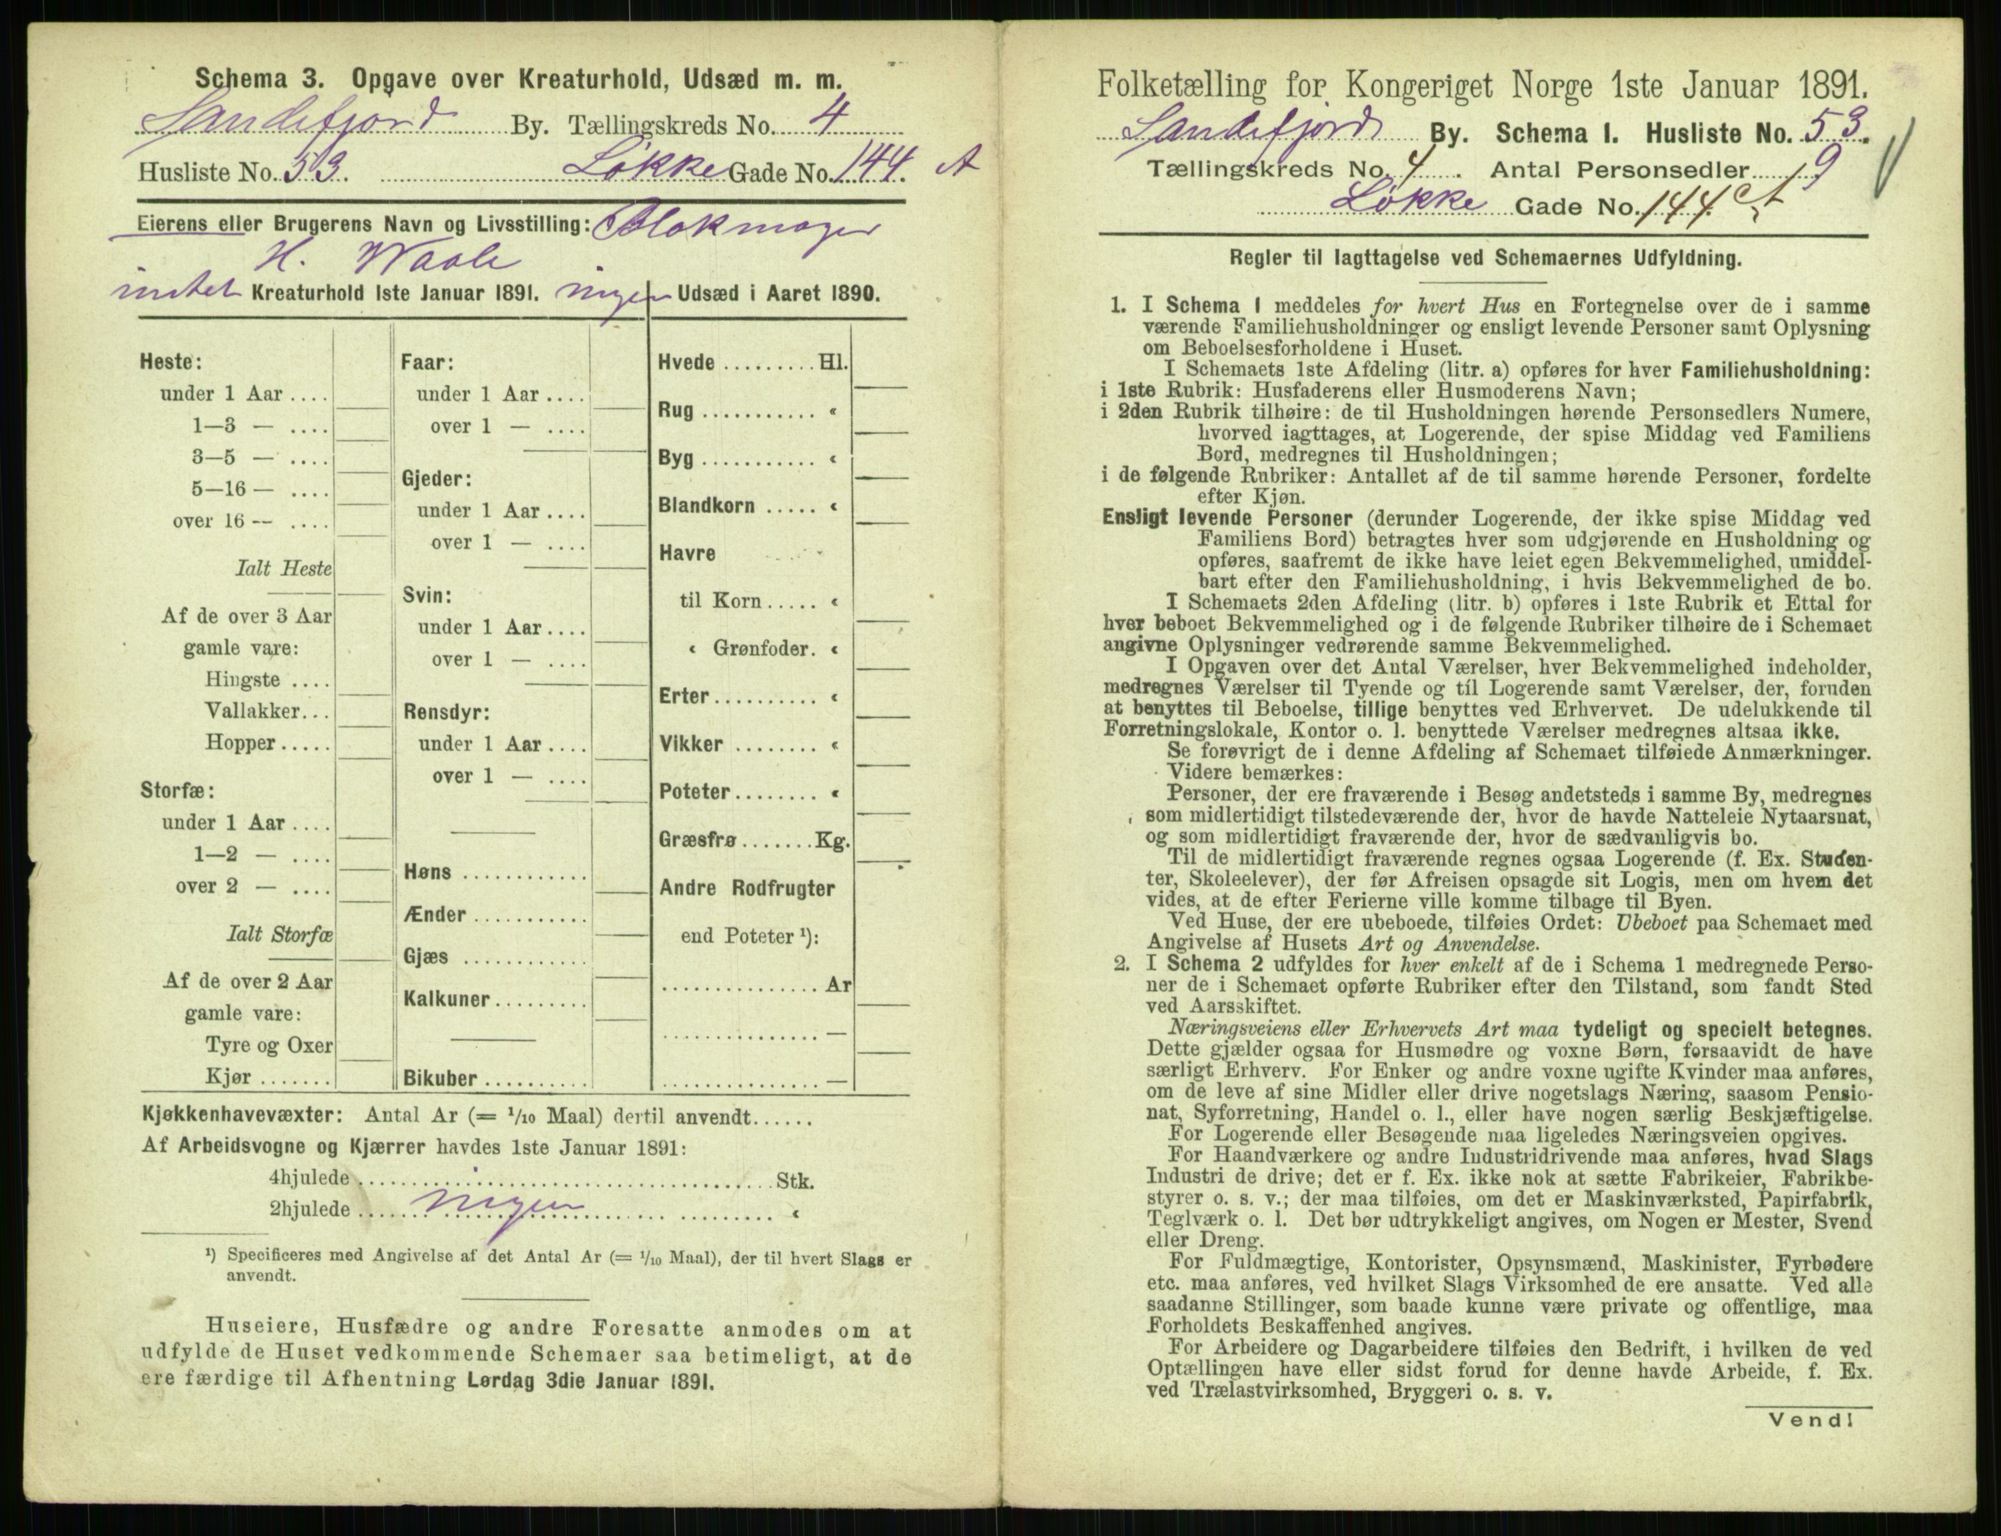 Schema 3. Opgave over Kreaturhold, Udsæd m. m.
Sandefjord By. Tællingskreds No. 4
Husliste No. 53. Løkke Gade No. 144. A
Eierens eller Brugerens Navn og Livsstilling: Blokmager
H. Waale
intet Kreaturhold 1ste Januar 1891. ingen Udsæd i Aaret 1890.
Heste:
under 1 Aar ....
1—3 — ....
3—5 — ....
5—16 — ....
over 16 -- ....
Ialt Heste
Af de over 3 Aar
gamle vare:
Hingste ....
Vallakker...
Hopper.....
Storfæ:
under 1 Aar ....
1—2 — ....
over 2 — ....
Ialt Storfæ
Af de over 2 Aar
gamle vare:
Tyre og Oxer
Kjør.......
Faar:
under 1 Aar ....
over 1 — ....
Gjeder:
under 1 Aar ....
over 1 — ....
Svin:
under 1 Aar....
over 1 — ....
Rensdyr:
under 1 Aar....
over 1 — ....
Høns ............
Ænder...........
Gjæs ............
Kalkuner.........
Bikuber ..........
Hvede ......... Hl.
Rug ........... «
Byg ........... «
Blandkorn ..... «
Havre
til Korn..... «
« Grønfoder. «
Erter.......... «
Vikker ........ «
Poteter........ «
Græsfrø....... Kg.
Andre Rodfrugter
end Poteter ¹):
............... Ar
............... —
............... —
Kjøkkenhavevæxter: Antal Ar (= 1/10 Maal) dertil anvendt......
Af Arbeidsvogne og Kjærrer havdes 1ste Januar 1891:
4hjulede ........................................ Stk.
2hjulede ..... ingen ......................... «
¹) Specificeres med Angivelse af det Antal Ar (= 1/10 Maal), der til hvert Slags er
anvendt.
Huseiere, Husfædre og andre Foresatte anmodes om at
udfylde de Huset vedkommende Schemaer saa betimeligt, at de
ere færdige til Afhentning Lørdag 3die Januar 1891.
Folketælling for Kongeriget Norge 1ste Januar 1891.
Sandefjord By. Schema 1. Husliste No. 53.
Tællingskreds No. 4. Antal Personsedler 19
Løkke Gade No. 144. A
Regler til Iagttagelse ved Schemaernes Udfyldning.
1. I Schema 1 meddeles for hvert Hus en Fortegnelse over de i samme
værende Familiehusholdninger og ensligt levende Personer samt Oplysning
om Beboelsesforholdene i Huset.
I Schemaets 1ste Afdeling (litr. a) opføres for hver Familiehusholdning:
i 1ste Rubrik: Husfaderens eller Husmoderens Navn;
i 2den Rubrik tilhøire: de til Husholdningen hørende Personsedlers Numere,
hvorved iagttages, at Logerende, der spise Middag ved Familiens
Bord, medregnes til Husholdningen;
i de følgende Rubriker: Antallet af de til samme hørende Personer, fordelte
efter Kjøn.
Ensligt levende Personer (derunder Logerende, der ikke spise Middag ved
Familiens Bord) betragtes hver som udgjørende en Husholdning og
opføres, saafremt de ikke have leiet egen Bekvemmelighed, umiddel-
bart efter den Familiehusholdning, i hvis Bekvemmelighed de bo.
I Schemaets 2den Afdeling (litr. b) opføres i 1ste Rubrik et Ettal for
hver beboet Bekvemmelighed og i de følgende Rubriker tilhøire de i Schemaet
angivne Oplysninger vedrørende samme Bekvemmelighed.
I Opgaven over det Antal Værelser, hver Bekvemmelighed indeholder,
medregnes Værelser til Tyende og til Logerende samt Værelser, der, foruden
at benyttes til Beboelse, tillige benyttes ved Erhvervet. De udelukkende til
Forretningslokale, Kontor o. l. benyttede Værelser medregnes altsaa ikke.
Se forøvrigt de i denne Afdeling af Schemaet tilføiede Anmærkninger.
Videre bemærkes:
Personer, der ere fraværende i Besøg andetsteds i samme By, medregnes
som midlertidigt tilstedeværende der, hvor de havde Natteleie Nytaarsnat,
og som midlertidigt fraværende der, hvor de sædvanligvis bo.
Til de midlertidigt fraværende regnes ogsaa Logerende (f. Ex. Studen-
ter, Skoleelever), der før Afreisen opsagde sit Logis, men om hvem det
vides, at de efter Ferierne ville komme tilbage til Byen.
Ved Huse, der ere ubeboede, tilføies Ordet: Ubeboet paa Schemaet med
Angivelse af Husets Art og Anvendelse.
2. I Schema 2 udfyldes for hver enkelt af de i Schema 1 medregnede Perso-
ner de i Schemaet opførte Rubriker efter den Tilstand, som fandt Sted
ved Aarsskiftet.
Næringsveiens eller Erhvervets Art maa tydeligt og specielt betegnes.
Dette gjælder ogsaa for Husmødre og voxne Børn, forsaavidt de have
særligt Erhverv. For Enker og andre voxne ugifte Kvinder maa anføres,
om de leve af sine Midler eller drive nogetslags Næring, saasom Pensio-
nat, Syforretning, Handel o. l., eller have nogen særlig Beskjæftigelse.
For Logerende eller Besøgende maa ligeledes Næringsveien opgives.
For Haandværkere og andre Industridrivende maa anføres, hvad Slags
Industri de drive; det er f. Ex. ikke nok at sætte Fabrikeier, Fabrikbe-
styrer o. s. v.; der maa tilføies, om det er Maskinværksted, Papirfabrik,
Teglværk o. l. Det bør udtrykkeligt angives, om Nogen er Mester, Svend
eller Dreng.
For Fuldmægtige, Kontorister, Opsynsmænd, Maskinister, Fyrbødere
etc. maa anføres, ved hvilket Slags Virksomhed de ere ansatte. Ved alle
saadanne Stillinger, som baade kunne være private og offentlige, maa
Forholdets Beskaffenhed angives.
For Arbeidere og Dagarbeidere tilføies den Bedrift, i hvilken de ved
Optællingen have eller sidst forud for denne havde Arbeide, f. Ex.
ved Trælastvirksomhed, Bryggeri o. s. v.
Vend!